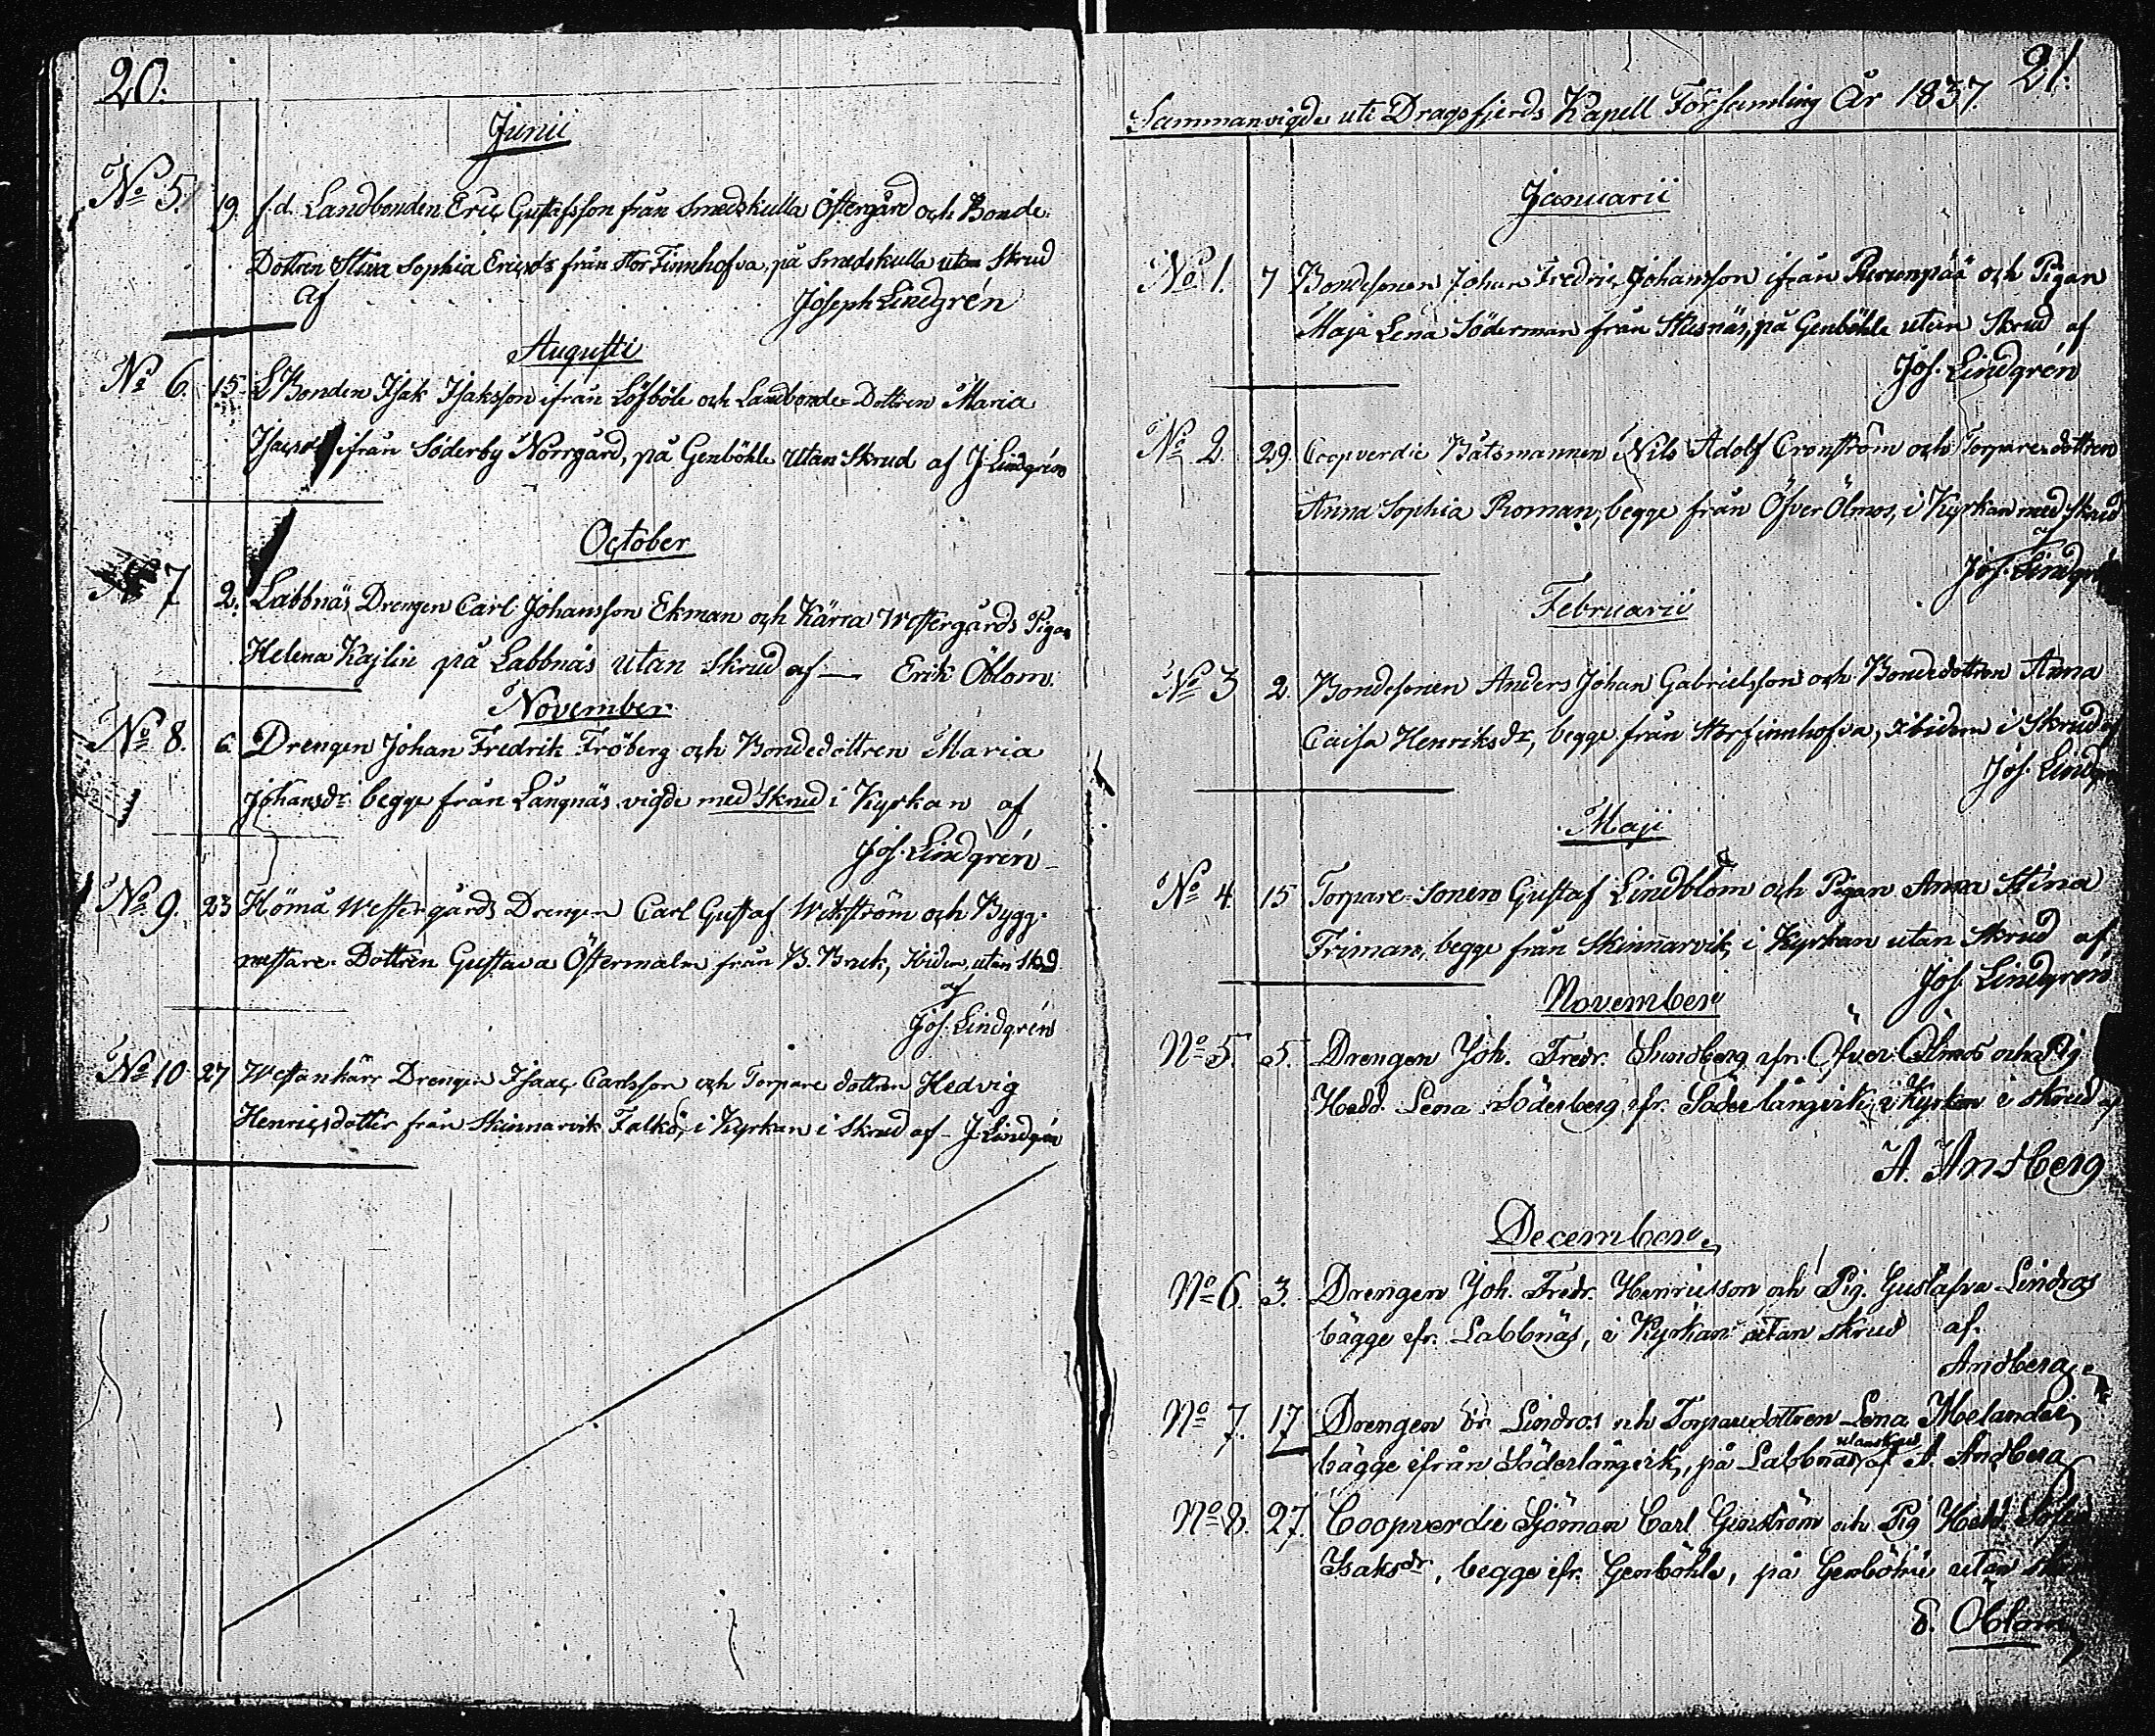 20.
Junii
No 5. 19. f.d. Landbonden Eric Gustafsson från Smedskulla Östergård och Bonde-
Dottren Stina Sophia Ericsdr från Stor Finnhofva, på Smedskulla utan Skrud
Af Joseph Lindgrén
Augusti
No 6. 15. LBonden Isak Isaksson ifrån Löfböle och Landbonde-Dottren Maria
Isacsdr ifrån Söderby Norrgård, på Genböhle Utan Skrud af J. Lindgrén
October
No 7 2. Labbnäs Drengen Carl Johansson Ekman och Kärra Westergårds Pigan
Helena Kajlin på Labbnäs utan Skrud af — Erik Öblom.
November
No 8. 6. Drengen Johan Fredrik Fröberg och Bondedottren Maria
Johansdr begge från Långnäs vigde med Skrud i Kyrkan af
Jos. Lindgrén
No 9. 23 Hömå Westergårds Drengen Carl Gustaf Wikström och Bygg-
mästare-Dottren Gustava Östermalm från B. Bruk, Ibidem, utan Skrud
af
Jos. Lindgrén
No 10 27 Westankärr Drengen Isaac Carlsson och Torpare dottren Hedvig
Henricsdotter från Skinnarvik Falkö, i Kyrkan i Skrud af - J. Lindgrén
21.
Sammanvigde uti Dragsfjerds Kapell Församling År 1837.
Januarii
No 1. 7 Bondesonen Johan Fredric Johansson ifrån och Pigan
Maja Lena Söderman från Stusnäs, på Genböhle utan Skrud af
Jos. Lindgrén
No 2. 29. Coopverdie Båtsmannen Nils Adolf Cronström och Torparedottren
Anna Sophia Roman, begge från Öfver Ölmos, i Kyrkan med Skrud
af
Jos. Lindgrén
Februarii
No 3 2. Bondesonen Anders Johan Gabrielsson och Bondedottren Anna
Caisa Henriksdr, begge från Storfinnhofva, Ibidem i Skrud af
Jos. Lindgrén
Maji
No 4. 15 Torpare-Sonen Gustaf Lindblom och Pigan Anna Stina
Friman, begge från Skinnarvik, i Kyrkan utan Skrud af
Jos. Lindgrén
November
No 5. 5. Drengen Joh. Fredr. Sundberg ifr. Öfver Ölmos och Pig.
Hedd. Lena Söderberg ifr. Söderlångvik, i Kyrkan i skrud af
A. Andberg
December
No 6. 3. Drengen Joh. Fredr. Henricsson och Pig. Gustafva Lindros
bägge ifr. Labbnäs, i Kyrkan utan skrud af.
Andberg
No 7. 17 Drengen Lindros och Torparedottren Lena Melander,
bägge ifrån Söderlångvik, på Labbnäs utan skrud af A. Andberg
No 8. 27. Coopverdie Sjöman Carl och Pig Hedd. Sofia
Isaksdr, begge ifr. Genböhle, på Genböhle utan
E. Öblom